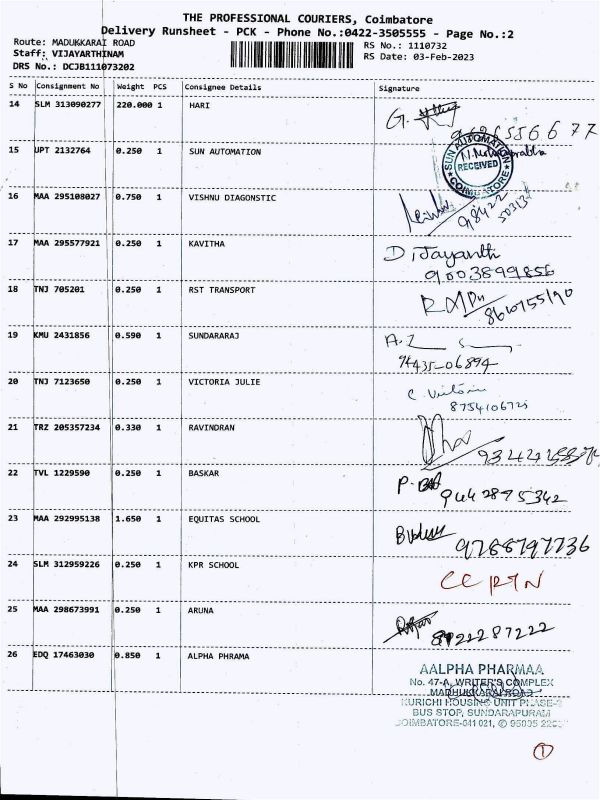 THE PROFESSIONAL COURIERS, Coimbatore
Delivery Runsheet - PCK - Phone No.:0422-3505555 - Page No.:2
Route: MADUKKARAI ROAD
Staff: VIJAYARTHINAM
DRS No.: DCJB111073202
RS No.: 1110732
RS Date: 03-Feb-2023
S No Consignment No Weight PCS Consignee Details Signature
14 SLM 313090277 220.000 1 HARI G.
15 UPT 2132764 0.250 1 SUN AUTOMATION
SUN AUTOMATION
RECEIVED
COIMBATORE
16 MAA 295108027 0.750 1 VISHNU DIAGONSTIC
98422
50313
17 MAA 295577921 0.250 1 KAVITHA D. Jayanth
9003899856
18 TNJ 705201 0.250 1 RST TRANSPORT
19 KMU 2431856 0.590 1 SUNDARARAJ
94435-06894
20 TNJ 7123650 0.250 1 VICTORIA JULIE
21 TRZ 205357234 0.330 1 RAVINDRAN
22 TVL 1229590 0.250 1 BASKAR
9442895342
23 MAA 292995138 1.650 1 EQUITAS SCHOOL
9788797736
24 SLM 312959226 0.250 1 KPR SCHOOL
25 MAA 298673991 0.250 1 ARUNA
8922287222
26 EDQ 17463030 0.850 1 ALPHA PHRAMA
AALPHA PHARMAA
No. 47-A, WRITER'S COMPLEX
MADHUKKARAI ROAD
KURICHI HOUSING UNIT PHASE-
BUS STOP, SUNDARAPURAM
COIMBATORE-641 021,
1